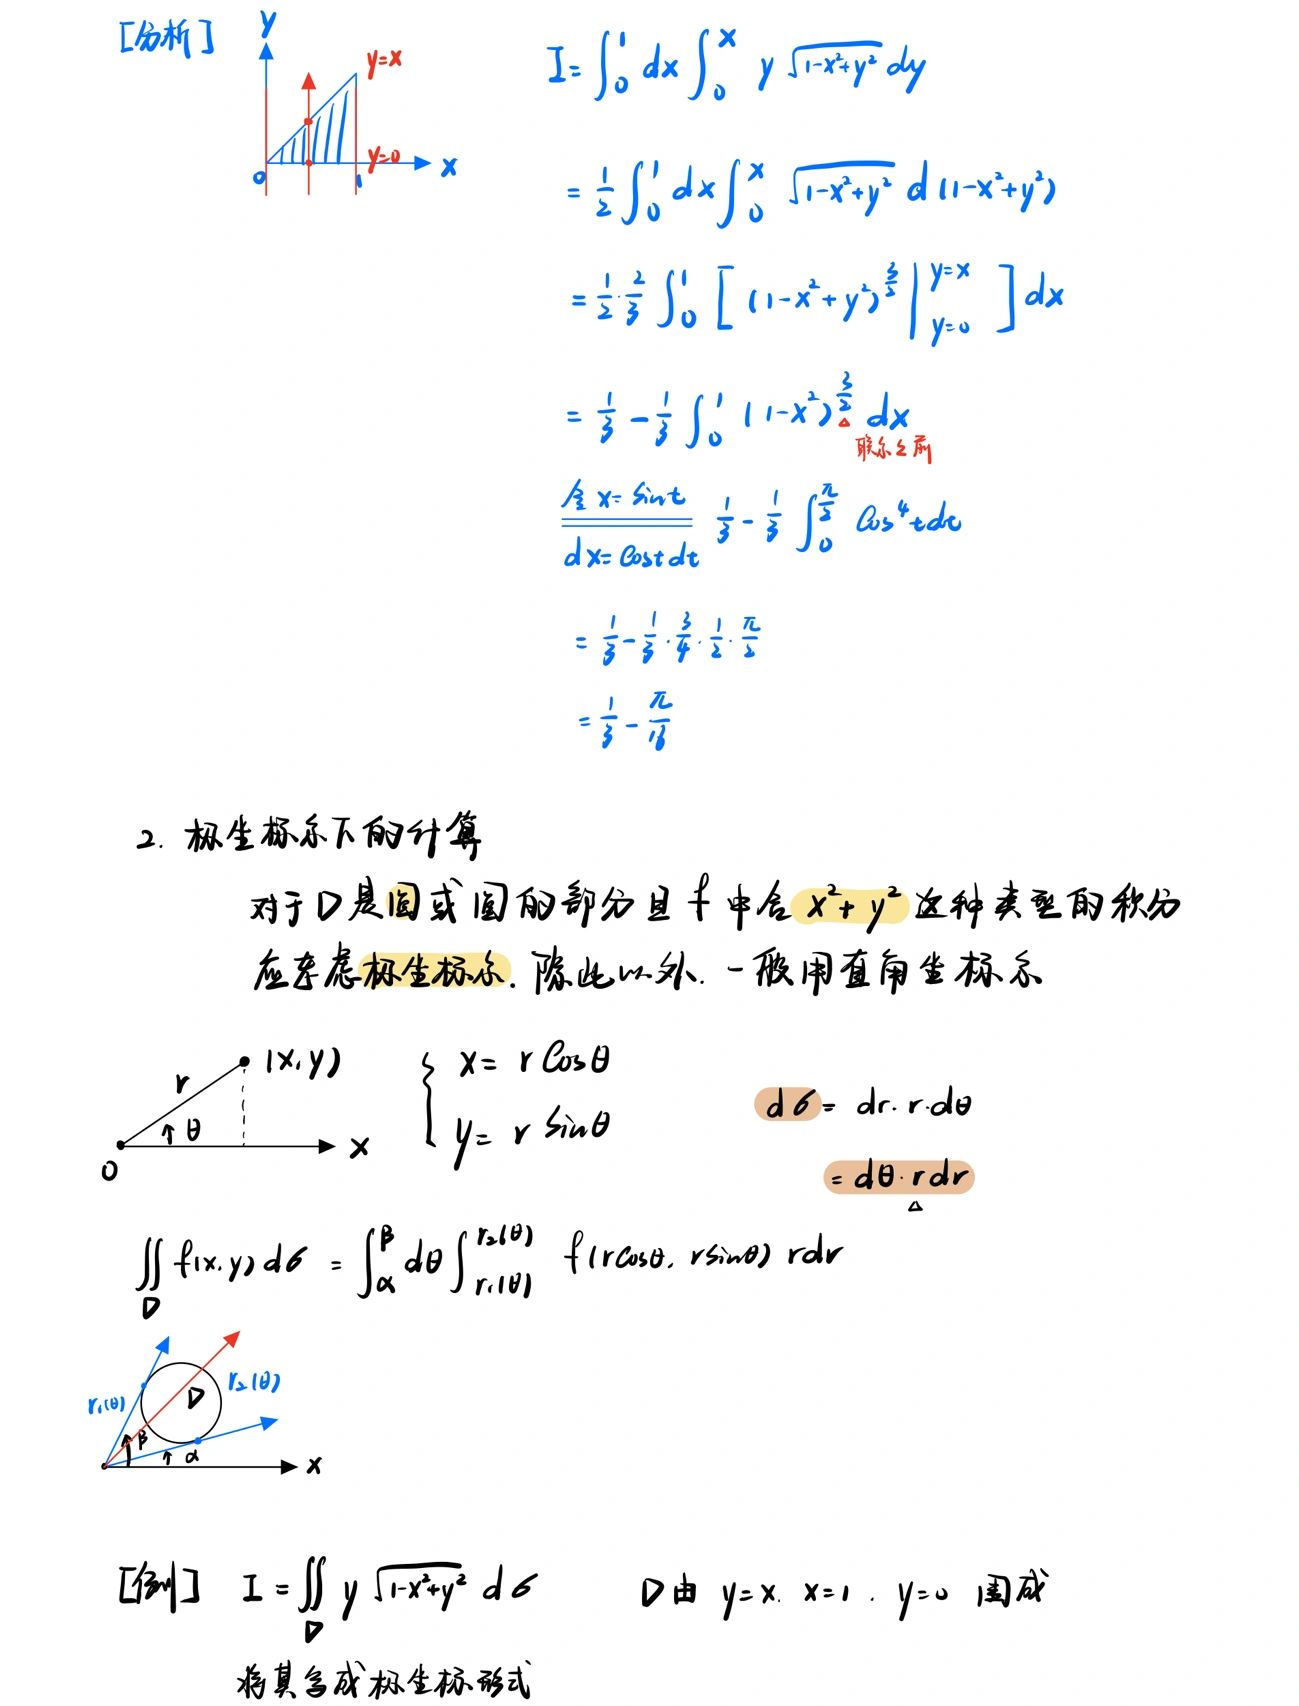 [分析]
y
y=x
y=0
0
1
x
I = ∫₀¹ dx ∫₀ˣ y √(1-x²+y²) dy
= 1/2 ∫₀¹ dx ∫₀ˣ √(1-x²+y²) d(1-x²+y²)
= 1/2 · 2/3 ∫₀¹ [ (1-x²+y²)^(3/2) |_(y=0)^(y=x) ] dx
= 1/3 - 1/3 ∫₀¹ (1-x²)^(3/2) dx
△ 联系之前
令 x = sint
dx = costdt
1/3 - 1/3 ∫₀^(π/2) cos⁴tdt
= 1/3 - 1/3 · 3/4 · 1/2 · π/2
= 1/3 - π/16
2. 极坐标系下的计算
对于D是圆或圆的部分且 f 中含 x²+y² 这种类型的积分
应考虑极坐标系. 除此以外. 一般用直角坐标系
r
(x,y)
θ
0
x
{ x = r cosθ
y = r sinθ
dσ = dr · r · dθ
= dθ · rdr
△
∬_D f(x,y) dσ = ∫_α^β dθ ∫_(r₁(θ))^(r₂(θ)) f(rcosθ, rsinθ) rdr
r₁(θ)
D
r₂(θ)
β
α
x
[例] I = ∬_D y √(1-x²+y²) dσ D由 y=x. x=1. y=0 围成
将其写成极坐标形式